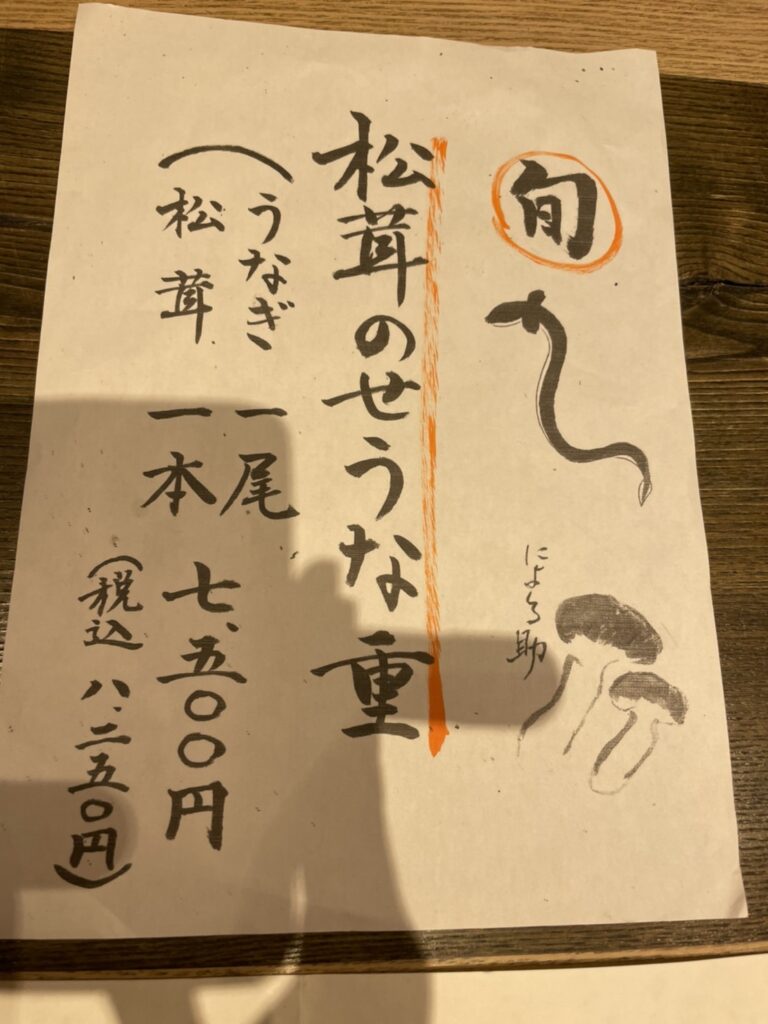 旬
によろ助
松茸のせうな重
(うなぎ 一尾
松茸 一本
七、五〇〇円
(税込 八、二五〇円)